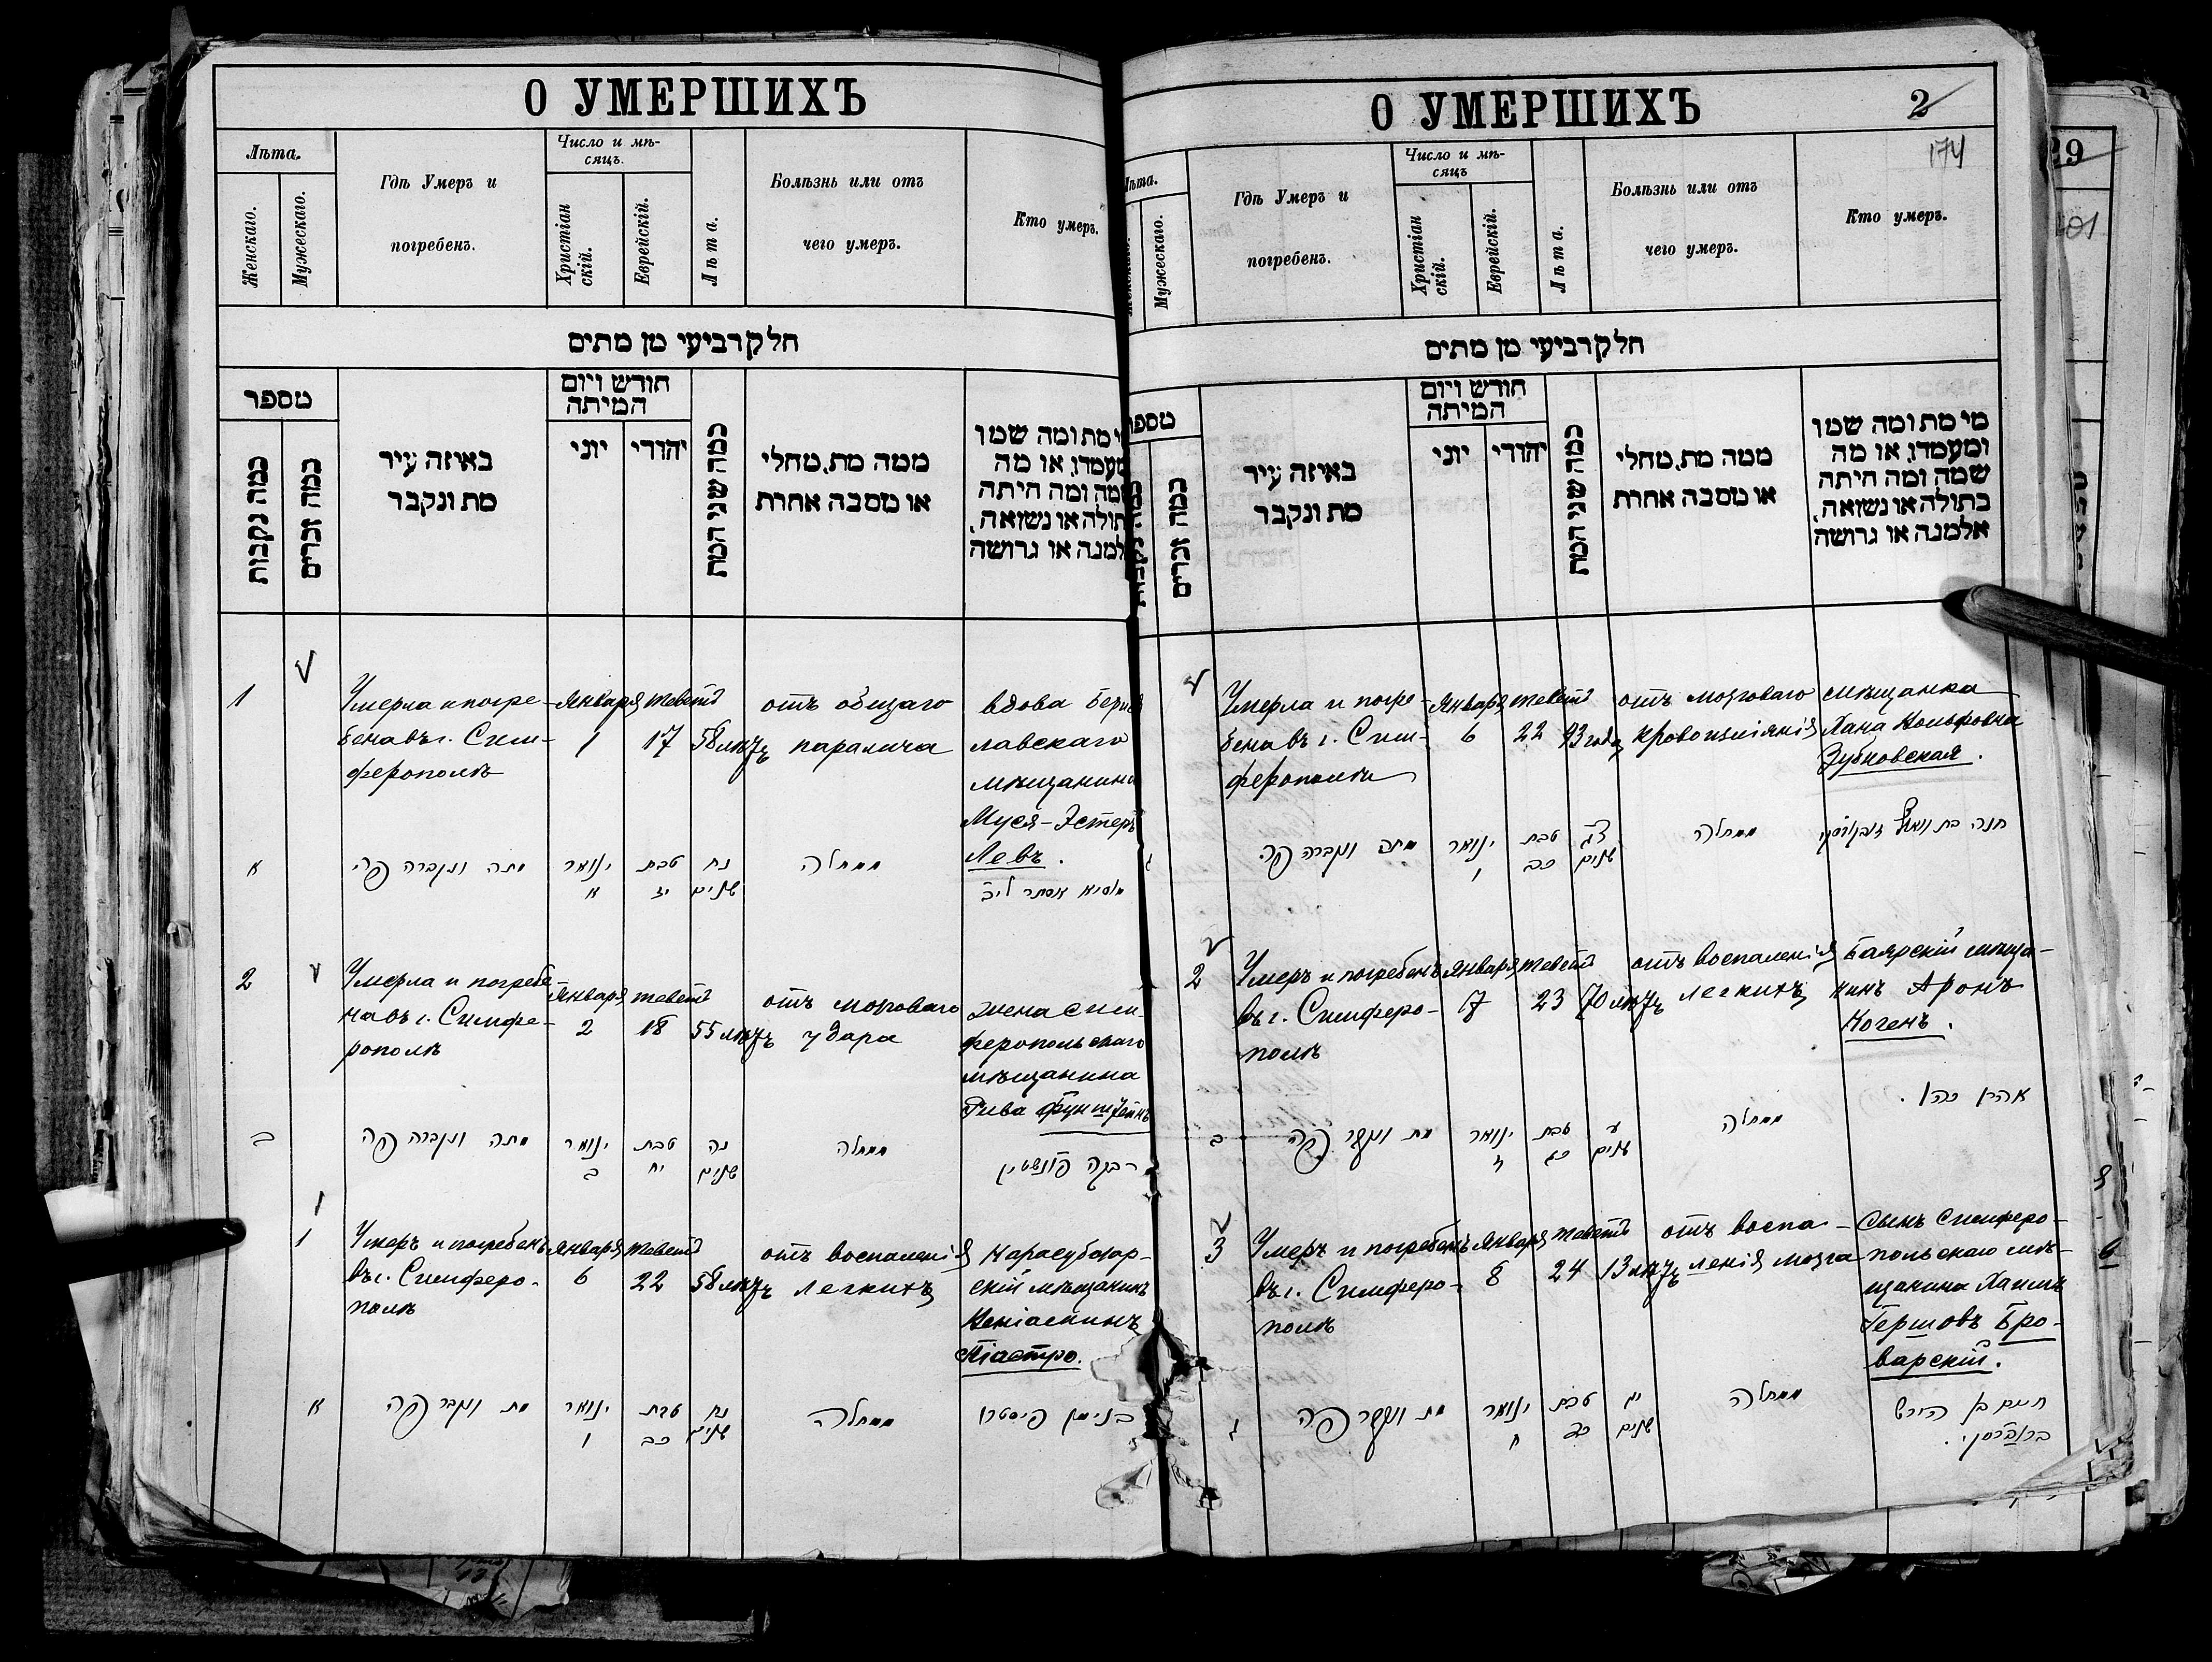 О УМЕРШИХЪ
Лѣта.
Женскаго.
Мужескаго.
Гдѣ Умеръ и
погребенъ.
Число и мѣ-
сяцъ.
Христіан
скій.
Еврейскій.
Лѣта.
Болѣзнь или отъ
чего умеръ.
Кто умеръ.
חלק רביעי מן מתים
מספר
כמה נקבות
כמה זכרים
באיזה עיר
מת ונקבר
חודש ויום
המיתה
יוני
יהודי
כמה שני המת
ממה מת, מחלי
או מסבה אחרת
מי מת ומה שמו
ומעמדו, או מה
שמה ומה היתה
בתולה או נשואה,
אלמנה או גרושה
1
Умерла и погре-
бена въ г. Сим-
ферополѣ
Января
1
Тевета
17
58 лѣтъ
отъ общаго
паралича
вдова
лавскаго
мѣщанина
Муся-Эстеръ
Левъ.
א
מתה ונקברה פה
ינואר
א
טבת
יז
נח
שנים
ממחלה
מוסיא אסתר ליב
2
Умерла и погребе
на въ г. Симфе-
рополѣ
Января
2
Тевета
18
55 лѣтъ
отъ мозговаго
удара
жена сим-
феропольскаго
мѣщанина
Рива Фунштейнъ
ב
מתה ונקברה פה
ינואר
ב
טבת
יח
נה
שנים
ממחלה
רבקה פונשטין
1
1
Умеръ и погребенъ
въ г. Симферо-
полѣ
Января
6
Тевета
22
58 лѣтъ
отъ воспаленія
легкихъ
Карасубазар-
скій мѣщанинъ
Веніаминъ
Піастро.
א
מת ונקבר פה
ינואר
ו
טבת
כב
נח
שנים
ממחלה
בנימן פיסטרו
О УМЕРШИХЪ
2
174
Лѣта.
Мужескаго.
Гдѣ Умеръ и
погребенъ.
Число и мѣ-
сяцъ
Христіан
скій.
Еврейскій.
Лѣта.
Болѣзнь или отъ
чего умеръ.
Кто умеръ.
חלק רביעי מן מתים
מספר
כמה זכרים
באיזה עיר
מת ונקבר
חודש ויום
המיתה
יוני
יהודי
כמה שני המת
ממה מת, מחלי
או מסבה אחרת
מי מת ומה שמו
ומעמדו, או מה
שמה ומה היתה
בתולה או נשואה,
אלמנה או גרושה
Умерла и погре-
бена въ г. Сим-
ферополѣ
Января
6
Тевета
22
93 года
отъ мозговаго
кровоизліянія
мѣщанка
Хана Вольфовна
Зубковская.
ג
מתה ונקברה פה
ינואר
ו
טבת
כב
צג
שנים
ממחלה
חנה בת וואלף
2
Умеръ и погребенъ
въ г. Симферо-
полѣ
Января
17
Тевета
23
70 лѣтъ
отъ воспаленія
легкихъ
Баярскій мѣща-
нинъ Аронъ
Когенъ.
ב
מת ונקבר פה
ינואר
ז
טבת
כג
ע
שנים
ממחלה
אהרן כהן.
3
Умеръ и погребенъ
въ г. Симферо-
полѣ
Января
8
Тевета
24
13 лѣтъ
отъ воспа-
ленія мозга
Сынъ симферо-
польскаго мѣ-
щанина Хаимъ
Гершовъ Бро-
варскій.
ג
מת ונקבר פה
ינואר
ח
טבת
כד
יג
שנים
ממחלה
חיים בן הירש
בראברסקי.
29
101